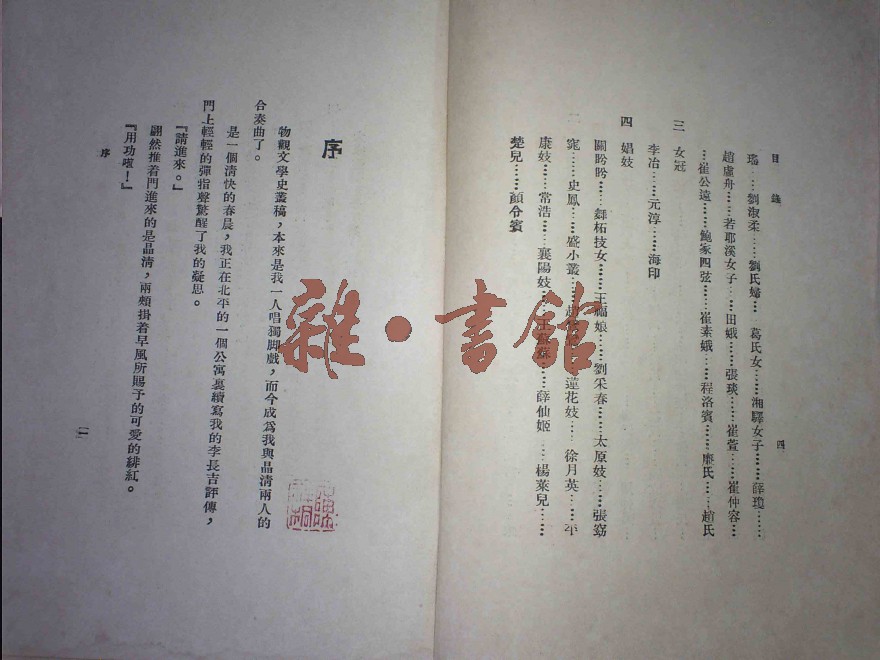 目錄
四
瑤……劉淑柔……劉氏婦… 葛氏女……湘驛女子……薛瓊……
趙虛舟……若耶溪女子…田娥……張琰……崔萱……崔仲容…
…崔公遠……鮑家四弦……崔素娥…程洛賓……廉氏……趙氏
三 女冠
李冶……元淳……海印
四 娼妓
關盼盼……舞柘技女……王福娘……劉采春……太原妓……張窈
窕……史鳳……盛小叢……蓮花妓…… 徐月英…平
康妓……常浩……襄陽妓……王蘇蘇……薛仙姬…楊萊兒……
楚兒……顏令賓
序
物觀文學史叢稿，本來是我一人唱獨脚戲，而今成爲我與晶清兩人的
合奏曲了。
是一個清快的春晨，我正在北平的一個公寓裏續寫我的李長吉評傳，
門上輕輕的彈指聲驚醒了我的凝思。
『請進來。』
翩然推着門進來的是晶清，兩頰掛着早風所賜予的可愛的緋紅。
『用功啦！』
序
一
雜·書館